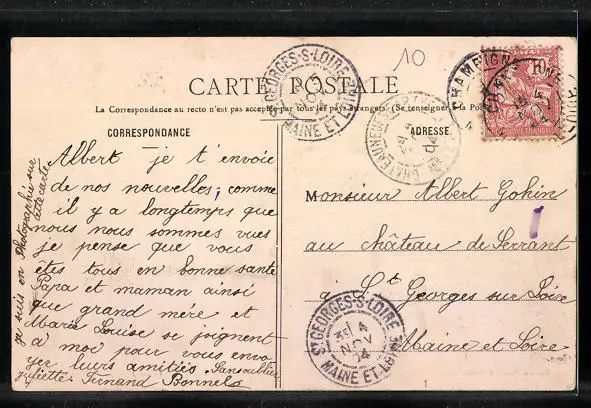 10
CARTE POSTALE
La Correspondance au recto n'est pas acceptée par tous les pays étrangers (Se renseigner à la Poste)
CORRESPONDANCE
ADRESSE
Albert je t'envoie
de nos nouvelles, comme
il y a longtemps que
nous nous sommes vues
je pense que vous
êtes tous en bonne santé
Papa et maman ainsi
que grand mére et
Marie Louise se joignent
a moi pour vous envo
yer leurs amitiés Sans oublier
Juliette. Fernand Bonnel
je suis en Photographie sur
cette carte
Monsieur Albert Gohin
au château de Serrant
à St Georges sur Loire
Maine et Loire
ST GEORGES-S-LOIRE
MAINE ET LOIRE
ST GEORGES-S-LOIRE
4
NOV
MAINE ET LOIRE
10